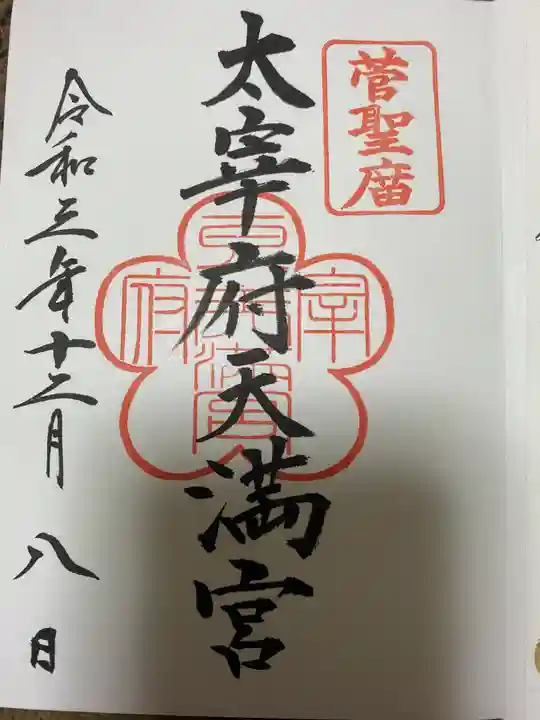 菅聖庿
太宰府天満宮
令和三年十二月八日